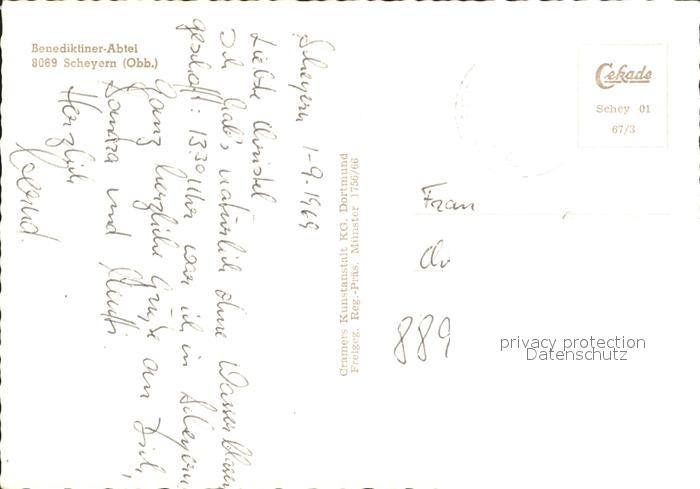 Benediktiner-Abtei
8069 Scheyern (Obb.)
Scheyern 1-9-1969
Liebe Christel
Ich hab's natürlich ohne Wasserblasen
geschafft: 13.30 Uhr war ich in Scheyern.
Ganz herzliche Grüße an Dich,
Sandra und
Herzlich
Cramers Kunstanstalt KG. Dortmund
Freigeg. Reg.-Präs. Münster 1756/66
Cekade
Schey 01
67/3
Frau
889
privacy protection
Datenschutz